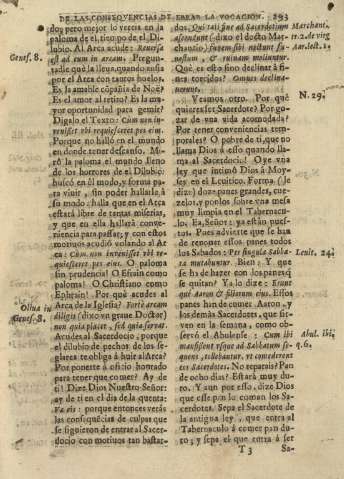 DE LAS CONSEQVENCIAS DE ERRAR LA VOCACION. 293
do; pero mejor lo verèis en la
paloma de el tiempo de el Di-
lubio. Al Arca acude: Reversa
est ad eum in arcam. Pregun-
tadle què la lleva, quando avisa
por el Arca con tantos huelos.
Es la amable cõpañia de Noè?
Es el amor al retiro? Es la ma-
yor oportunidad para gemir?
Digalo el Texto: Cùm non in-
venisset vbi requiesceret pes eius.
Porque no hallò en el mundo
en donde tener descanso. Mi-
rò la paloma el mundo lleno
de los horrores de el Dilubio:
buscò en èl modo, y forma pa-
ra vivir, y sin poder hallarla à
su modo: halla que en el Arca
estarà libre de tantas miserias,
y que en ella hallarà conve-
niencia para passar; y con estos
motivos acudiò volando al Ar-
ca: Cùm non invenisset vbi re-
quiesceret pes eius. O paloma
sin prudencia! O Efraìn como
paloma! O Christiano como
Ephraìn! Por què acudes al
Arca de la Iglesia? Fortè arcam
diligis (dixo vn grave Doctor)
non quia placet, sed quia servat.
Acudes al Sacerdocio, porque
el dilubio de pechos de los se-
glares te obliga à huir al Arca?
Por ponerte à oficio honrado
para tener que comer? Ay de
ti! Dize Dios Nuestro Señor:
ay de ti en el dia de la quenta:
Væ eis: porque entonces veràs
las consequencias de culpas que
se siguieron de entrar al Sacer-
docio con motivos tan bastar-
Genes. 8.
Oliva in
Genes. 8.
dos. Qui tali fine ad Sacerdotium
ascendunt (dixo el docto Mar-
chancio) finem sibi nostrum fu-
nestum, & ruinam moliuntur.
Què, es esto sino declinar à fi-
nes torcidos? Omnes declina-
verunt.
Veamos otro. Por què
quieres ser Sacerdote? Por go-
zar de vna vida acomodada?
Por tener conveniencias tem-
porales? O pobre de ti, que no
llama Dios à esso quando lla-
ma al Sacerdocio! Oye vna
ley, que intimò Dios à Moy-
ses en el Levitico. Forma (le
dize) doze panes grandes, cue-
zelos, y ponlos sobre vna mesa
muy limpia en el Taberna-
culo. Ea, Señor: ya estàn pues-
tos. Pues advierte que se han
de renovar essos panes todos
los Sabados: Per singula Sabba-
ta mutabuntur. Bien: Y que
se ha de hazer con los panes q̃
se quitan? Ya lo dize: Erunt
què Aaron & filiorum eius. Estos
panes han de comer Aaron, y
los demàs Sacerdotes, que sir-
ven en la semana, como ob-
servò el Abulense: Cùm ibi
mansissent vsque ad Sabbatum se-
quens, tollebantur, vt comederent
eos Sacerdotes. No reparais? Pan
de ocho dias? Estarà muy du-
ro. Y aun por esso, dize Dios
que esse pan lo coman los Sa-
cerdotes. Sepa el Sacerdote de
la antigua ley, que entra al
Tabernaculo à comer pan du-
ro; y sepa el que entra à ser
Marchant.
N. 29.
Levit. 24.
Abul. ibi,
q. 6.
T 3 Sa-